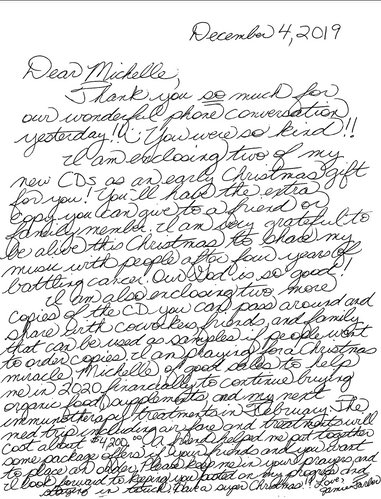 December 4, 2019
Dear Michelle,
Thank you so much for
our wonderful phone conversation
yesterday!! You were so kind!!
I am enclosing two of my
new CDs as an early Christmas gift
for you! You'll have the extra
copy you can give to a friend or
family member. I am very grateful to
be alive this Christmas to share my
music with people after four years of
battling cancer. Our God is so good!
I am also enclosing two more
copies of the CD you can pass around and
share with coworkers, friends, and family
that can be used as samples if people want
to order copies. I am praying for a Christmas
miracle, Michelle, of good sales to help
me in 2020 financially to continue buying
organic food, supplements, and my next
immunotherapy treatments in February. The
med trip including air fare and treatments will
cost about $4,200.00. A friend helped me put together
some package offers if your friends and you want
to place an order. Please keep me in your prayers, and
I'll look forward to keeping you posted on my progress and
staying in touch. Have a super Christmas! Love,